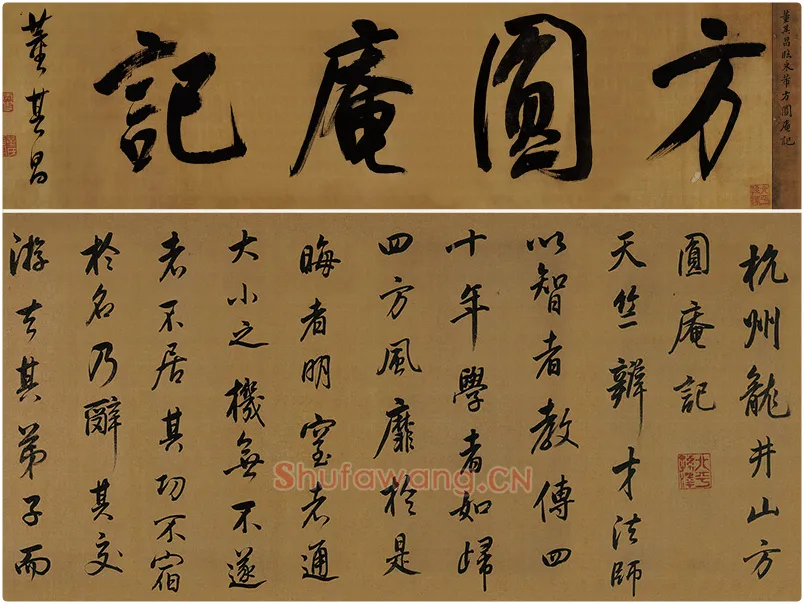 董其昌臨米芾方圓庵記
方圓庵記
董其昌
杭州龍井山方
圓庵記
天竺辯才法師
以智者教傳四
十年學者如歸
四方風靡於是
晦者明窒者通
大小之機無不遂
者不居其功不宿
於名乃辭其交
游去其弟子而
Shufawang.CN